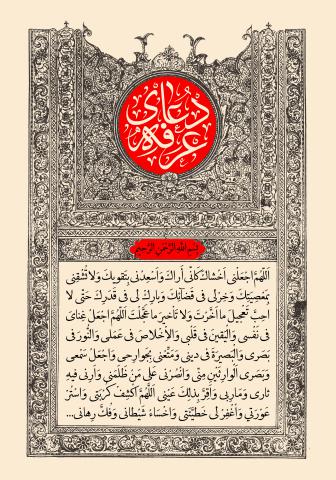 دعای
عرفه
بسم الله الرحمن الرحیم
اَللّهُمَّ اجْعَلْنى اَخْشاكَ كَأَنّى أَراكَ وَاَسْعِدْنى بِتَقْويكَ وَلا تُشْقِنى
بِمَعْصِيَتِكَ وَخِرْلى فى قَضآئِكَ وَبارِكْ لى فى قَدَرِكَ حَتّى لا
اُحِبَّ تَعْجيلَ ما اَخَّرْتَ وَلا تَأخيرَ ما عَجَّلْتَ اَللّهُمَّ اجْعَلْ غِناىَ
فى نَفْسى وَالْيَقينَ فى قَلْبى وَالْاِخْلاصَ فى عَمَلى وَالنُّورَ فى
بَصَرى وَالْبَصيرَةَ فى دينى وَمَتِّعْنى بِجَوارِحى وَاجْعَلْ سَمْعى
وَبَصَرى الْوارِثَيْنِ مِنّى وَانْصُرْنى عَلى مَنْ ظَلَمَنى وَاَرِنى فيهِ
ثارى وَمَآرِبى وَاَقِرَّ بِذلِكَ عَيْنى اَللَّهُمَّ اكْشِفْ كُرْبَتى وَاسْتُرْ
عَوْرَتى وَاغْفِرْ لى خَطيئَتى وَاخْسَاءْ شَيْطانى وَفُكَّ رِهانى...